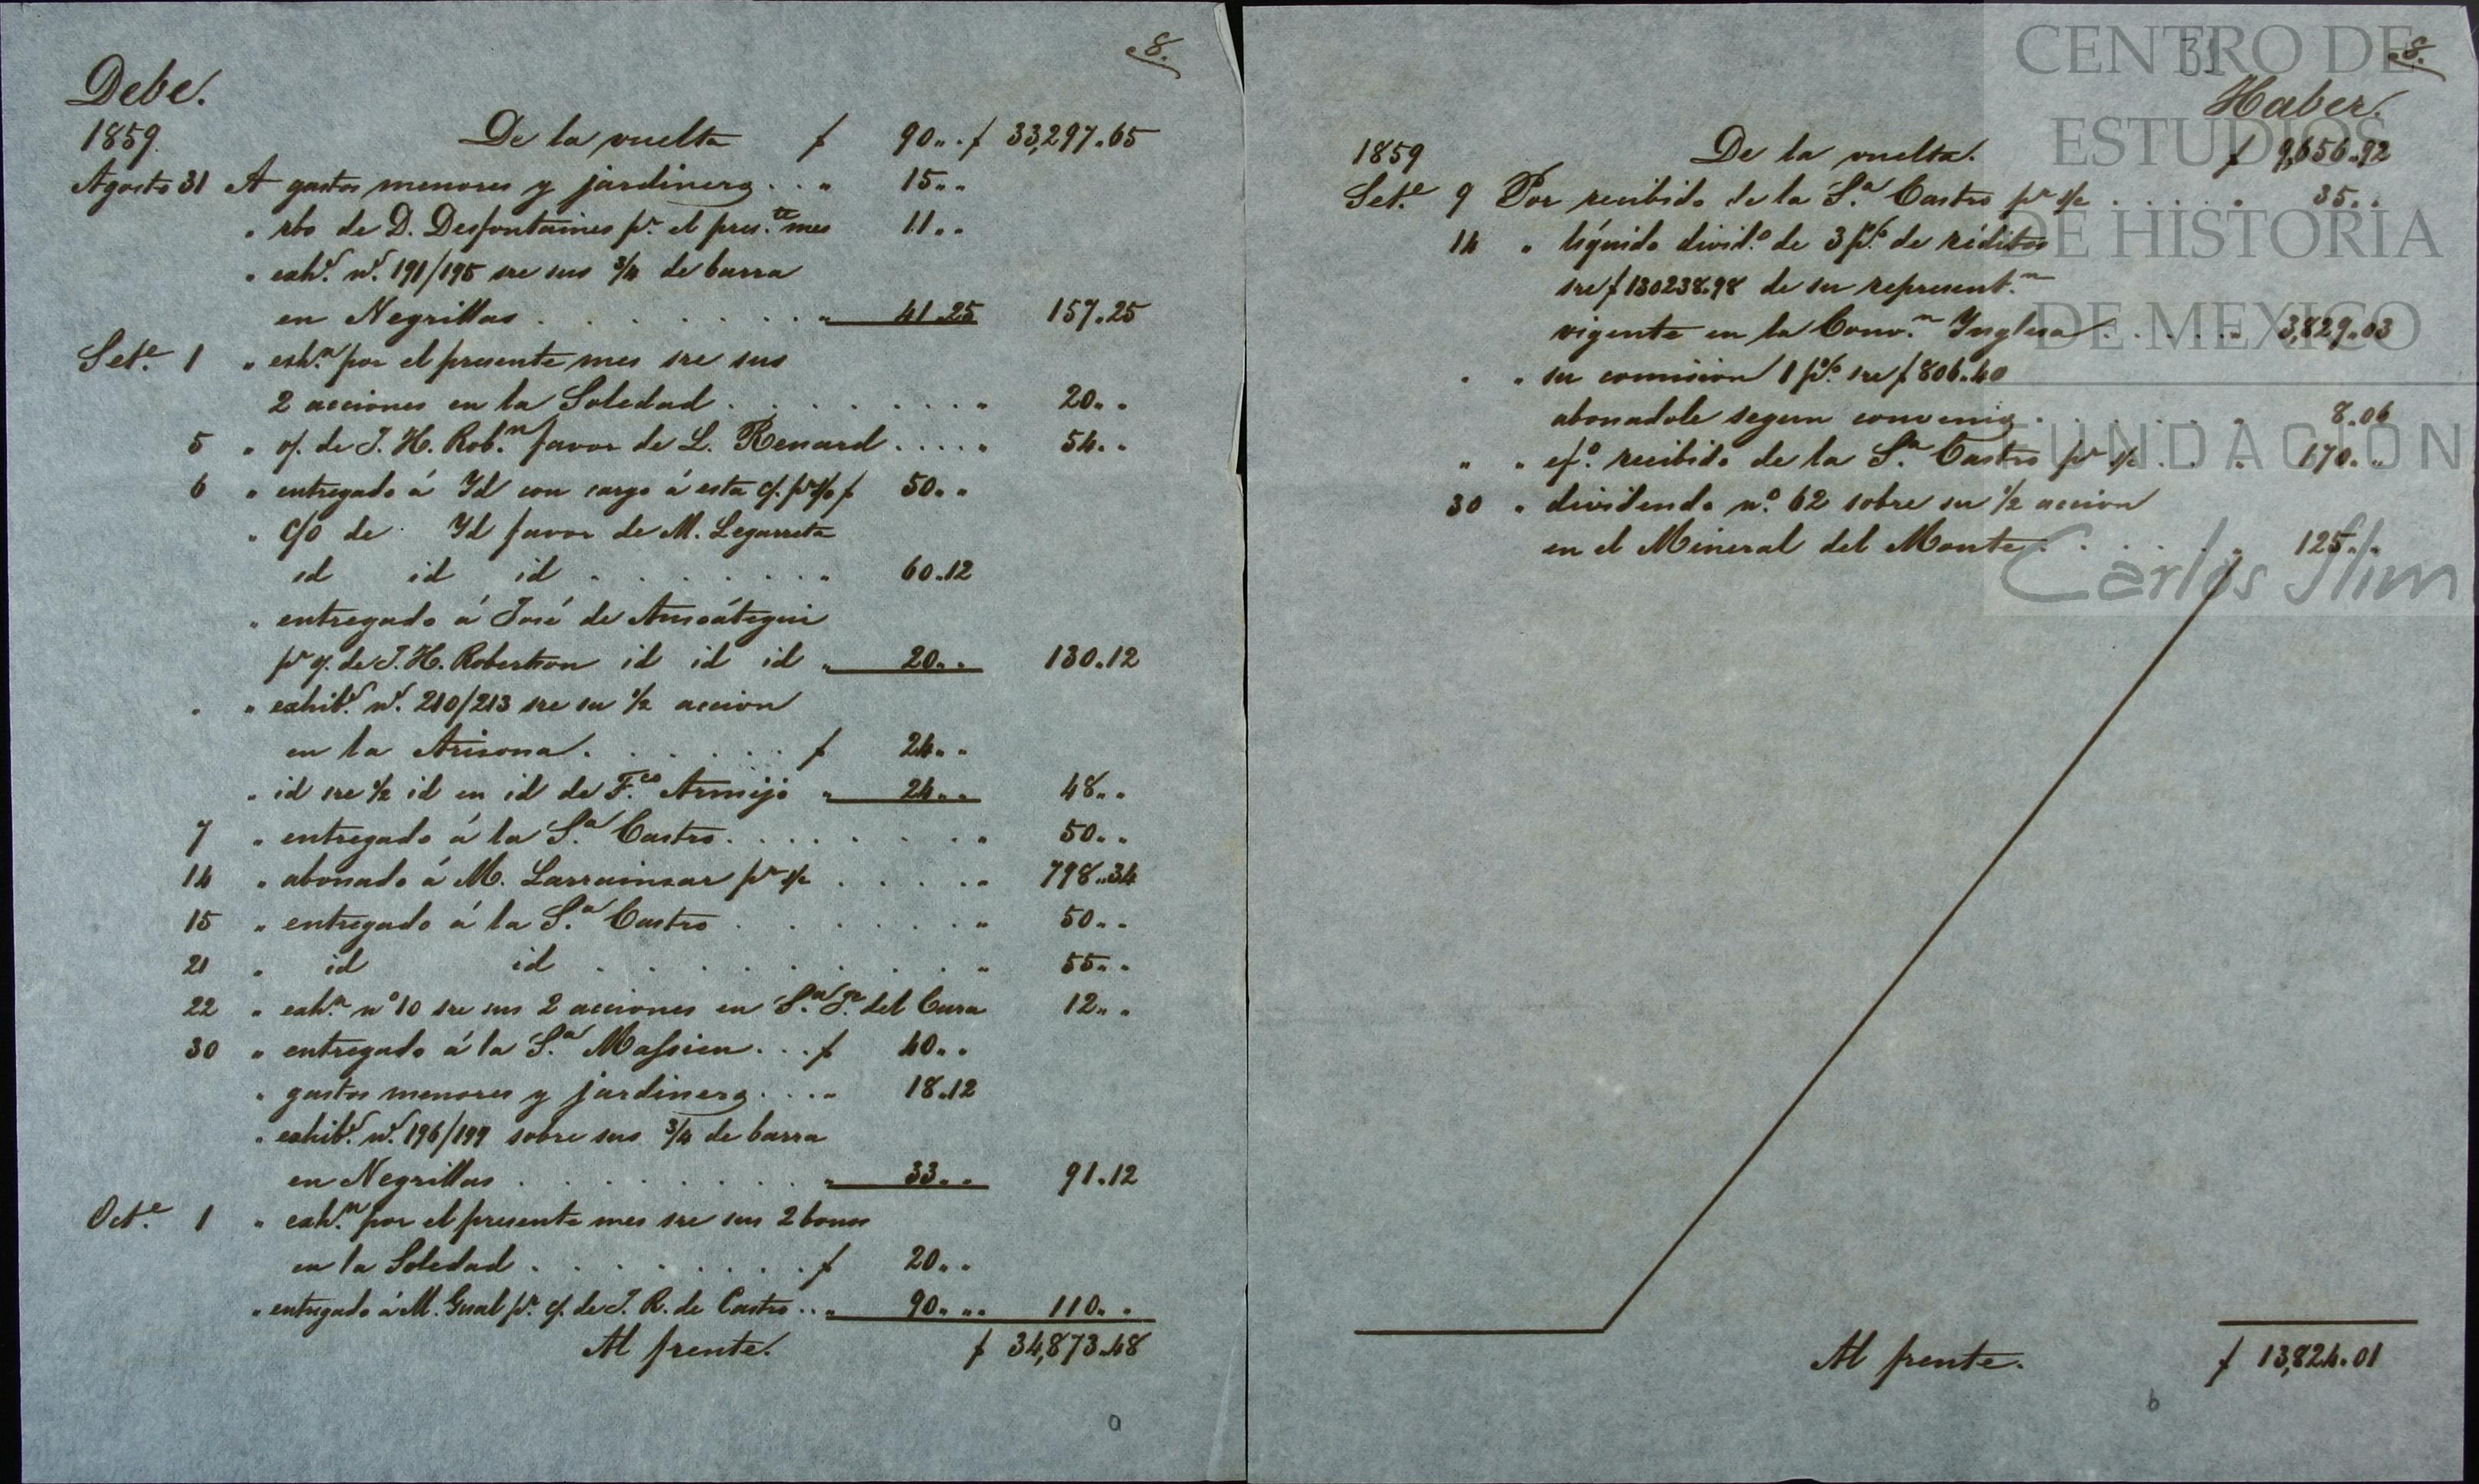 8.
Debe.
1859. De la vuelta $ 90.. $ 33,297.65
Agosto 31 A gastos menores y jardinero . . " 15..
" rbo de D. Desfontaines pr. el pres.te mes 11..
" exh.s n.s 191/195 sre sus 3/4 de barra
en Negrillas . . . . . . . " 41.25 157.25
Set.e 1 " exh.n por el presente mes sre sus
2 acciones en la Soledad . . . . . . . . " 20..
5 " o/. de J. H. Rob.n favor de L. Renard . . . . " 54..
6 " entregado á Id con cargo á esta c/. 50..
" c/o de Id favor de M. Legarreta
id id id . . . . . . . " 60.12
" entregado á José de Ansoátegui
pr o/. de J. H. Robertson id id id " 20.. 130.12
" " exhib.s n.s 210/213 sre su 1/2 accion
en la Arisona . . . . . . $ 24..
" id sre 1/2 id en id de F.co Armijo " 24.. 48..
7 " entregado á la S.a Castro . . . . . . . " 50..
14 " abonado á M. Larrainzar pr s/c . . . . " 798.34
15 " entregado á la S.a Castro . . . . . . . " 50..
21 " id id . . . . . . . . . " 55..
22 " exh.n n.o 10 sre sus 2 acciones en S.n J.e del Cura 12..
30 " entregado á la S.a Massieu . . . $ 40..
" gastos menores y jardinero . . . " 18.12
" exhib.s n.s 196/199 sobre sus 3/4 de barra
en Negrillas . . . . . . . . " 33.. 91.12
Oct.e 1 " exh.n por el presente mes sre sus 2 bonos
en la Soledad . . . . . . . . $ 20..
" entregado á M. Gual pr. o/. de J. R. de Castro . . " 90.. 110..
Al frente. $ 34,873.48
a
CENTRO DE
ESTUDIOS
DE HISTORIA
DE MEXICO
FUNDACIÓN
Carlos Slim
31
8.
Haber.
1859 De la vuelta. $ 9,656.92
Set.e 9 Por recibido de la S.a Castro pr s/c . . . . . 35..
14 " líquido divid.o de 3 p%. de réditos
sre $ 130238.98 de su represent.n
vigente en la Conv.n Inglesa . . . . . " 3,829.03
" " su comision 1 p%. sre $ 806.40
abonadole segun convenio . . . . . . " 8.06
" " ef.o recibido de la S.a Castro pr s/c . . . " 170..
30 " dividendo n.o 62 sobre su 1/2 accion
en el Mineral del Monte . . . . . . " 125..
Al frente. $ 13,824.01
b